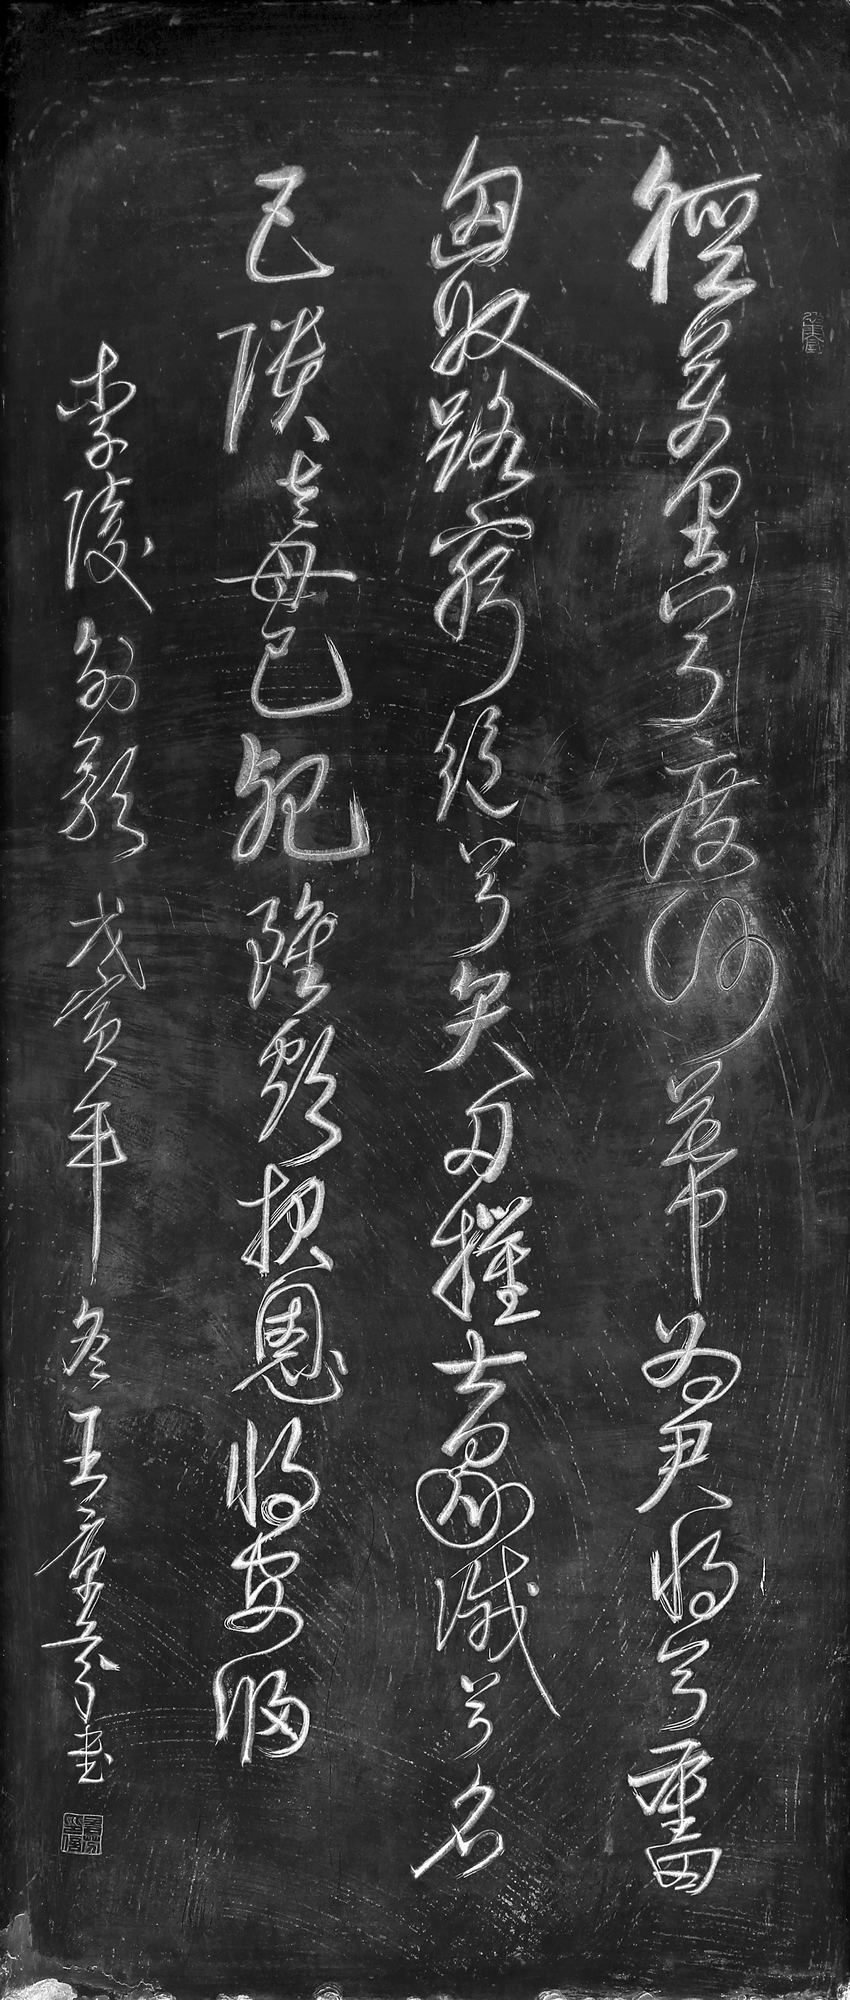 徑萬里兮度沙幕為君將兮奮
匈奴路窮絕兮矢刃摧士眾滅兮名
已隤老母已死雖欲報恩將安歸
李陵別歌 戊寅年冬 王景芬書